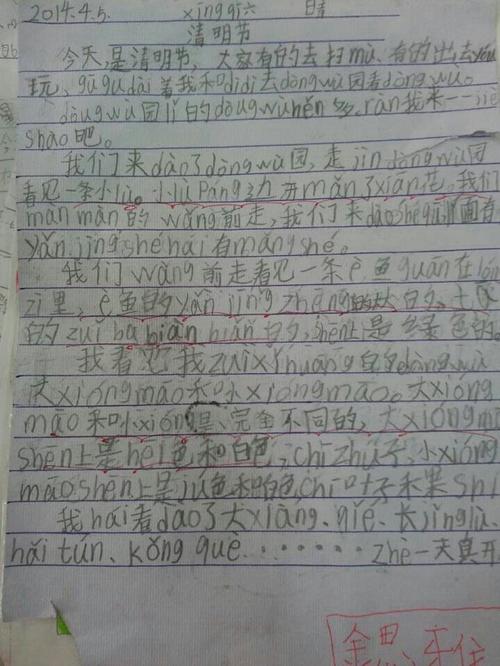 2014.4.5. xīngqī六 晴
清明节
今天是清明节，大家有的去扫mù，有的出去yóu
玩，gūgudài着我和dìdi去dòngwù园看dòngwù。
dòngwù园lǐ的dòngwùhěn多，ràn我来一一jiè
shào吧。
我们来dào了dòngwù园，走jìn dòngwù园
看见一条小lù。小lùpáng边开mǎn了xiān花。我们
mànmàn的wǎng前走，我们来dàoshéqū，里面有
yǎnjìngshéhái有mǎngshé。
我们wǎng前走看见一条è鱼guān在lóng
zi里，è鱼的yǎnjīngzhēng的大大的，
的zuǐbabiǎnbiǎn的，shēn上是绿色的。
我看见我zuìxǐhuāng的dòngwù
大xióngmāo和小xióngmāo。大xióng
māo和小xióng是完全不同的，大xióngmāo
shēn上是hēi色和白色，chīzhú子，小xióng
māoshēn上是jú色和白色，chī叶子和果shí
我hái看dào了大xiàng、qié、长jǐnglù、
hǎitún、kǒngquè………zhè一天真开